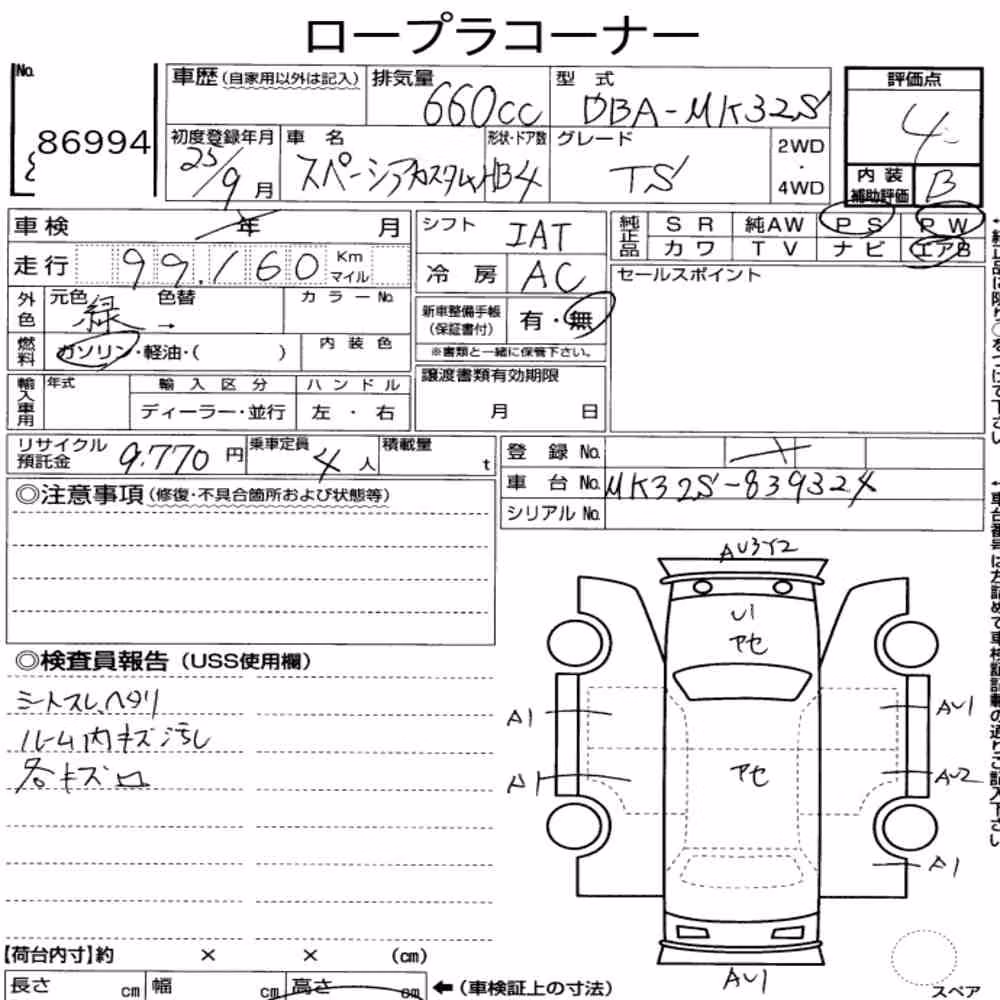 ロープラコーナー
No. 86994
車歴(自家用以外は記入) 排気量 660cc 型式 DBA-MK32S 評価点 4
初度登録年月 25/9月 車名 スペーシアカスタム 形状・ドア数 HB4 グレード TS 2WD・4WD 内装補助評価 B
車検 年 月
走行 99,160 Km マイル
外色 元色 緑 色替 → カラーNo.
燃料 ガソリン・軽油・( ) 内装色
輸入車用 年式 輸入区分 ディーラー・並行 ハンドル 左・右
シフト IAT
冷房 AC
新車整備手帳(保証書付) 有・無
※書類と一緒に保管下さい。
譲渡書類有効期限
月 日
純正品 SR 純AW PS PW
カワ TV ナビ エアB
セールスポイント
リサイクル預託金 9,770円 乗車定員 4人 積載量 t
登録No.
車台No. MK32S-839324
シリアルNo.
◎注意事項(修復・不具合箇所および状態等)
◎検査員報告(USS使用欄)
シートスレ、ヘタリ
ルーム内キズ汚し
各キズロ
AU3Y2
U1
アセ
A1
AU1
アセ
A1
AU2
A1
AU1
スペア
【荷台内寸】約 × × (cm)
長さ cm 幅 cm 高さ cm ←(車検証上の寸法)
車台番号は左詰めで車検証記載の通りご記入下さい